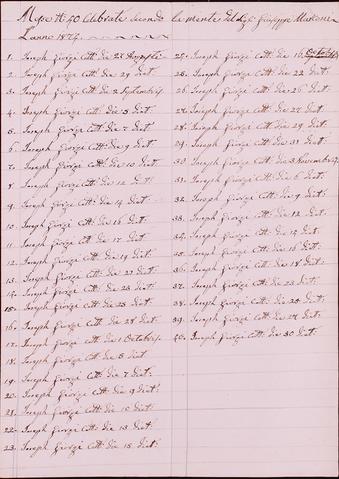 Messe N. 40 Celebrate secondo la mente del Sig. Giuseppe
L'anno 1874.
1. Joseph Giorgi Cott: die 28 Augusti
2. Joseph Giorgi Cott: die 29 dict:
3. Joseph Giorgi Cott: die 2 Septembris
4. Joseph Giorgi Cott: die 5 dict:
5. Joseph Giorgi Cott: die 7 dict:
6. Joseph Giorgi Cott: die 9 dict:
7. Joseph Giorgi Cott: die 10 dict:
8. Joseph Giorgi Cott: die 12 dict:
9. Joseph Giorgi Cott: die 14 dict:
10. Joseph Giorgi Cott: die 16 dict:
11. Joseph Giorgi Cott: die 17 dict:
12. Joseph Giorgi Cott: die 19 dict:
13. Joseph Giorgi Cott: die 21 dict:
14. Joseph Giorgi Cott: die 23 dict:
15. Joseph Giorgi Cott: die 25 dict:
16. Joseph Giorgi Cott: die 28 dict:
17. Joseph Giorgi Cott: die 1 Octobris
18. Joseph Giorgi Cott: die 5 dict
19. Joseph Giorgi Cott: die 7 dict:
20. Joseph Giorgi Cott: die 9 dict:
21. Joseph Giorgi Cott: die 10 dict:
22. Joseph Giorgi Cott: die 13 dict:
23. Joseph Giorgi Cott: die 15 dict:
Joseph Giorgi Cott: die 16 Octobris
Joseph Giorgi Cott: die 22 dict:
26. Joseph Giorgi Cott: die 26 dict:
27. Joseph Giorgi Cott: die 27 dict:
28. Joseph Giorgi Cott: die 29 dict:
29. Joseph Giorgi Cott: die 31 dict:
30. Joseph Giorgi Cott: die 3 Novembris
31. Joseph Giorgi Cott: die 6 dict:
32. Joseph Giorgi Cott: die 9 dict:
33. Joseph Giorgi Cott: die 12 dict:
34. Joseph Giorgi Cott: die 14 dict:
35. Joseph Giorgi Cott: die 16 dict:
36. Joseph Giorgi Cott: die 18 dict:
37. Joseph Giorgi Cott: die 23 dict:
38. Joseph Giorgi Cott: die dict:
39. Joseph Giorgi Cott: die dict:
40. Joseph Giorgi Cott: die 30 dict: